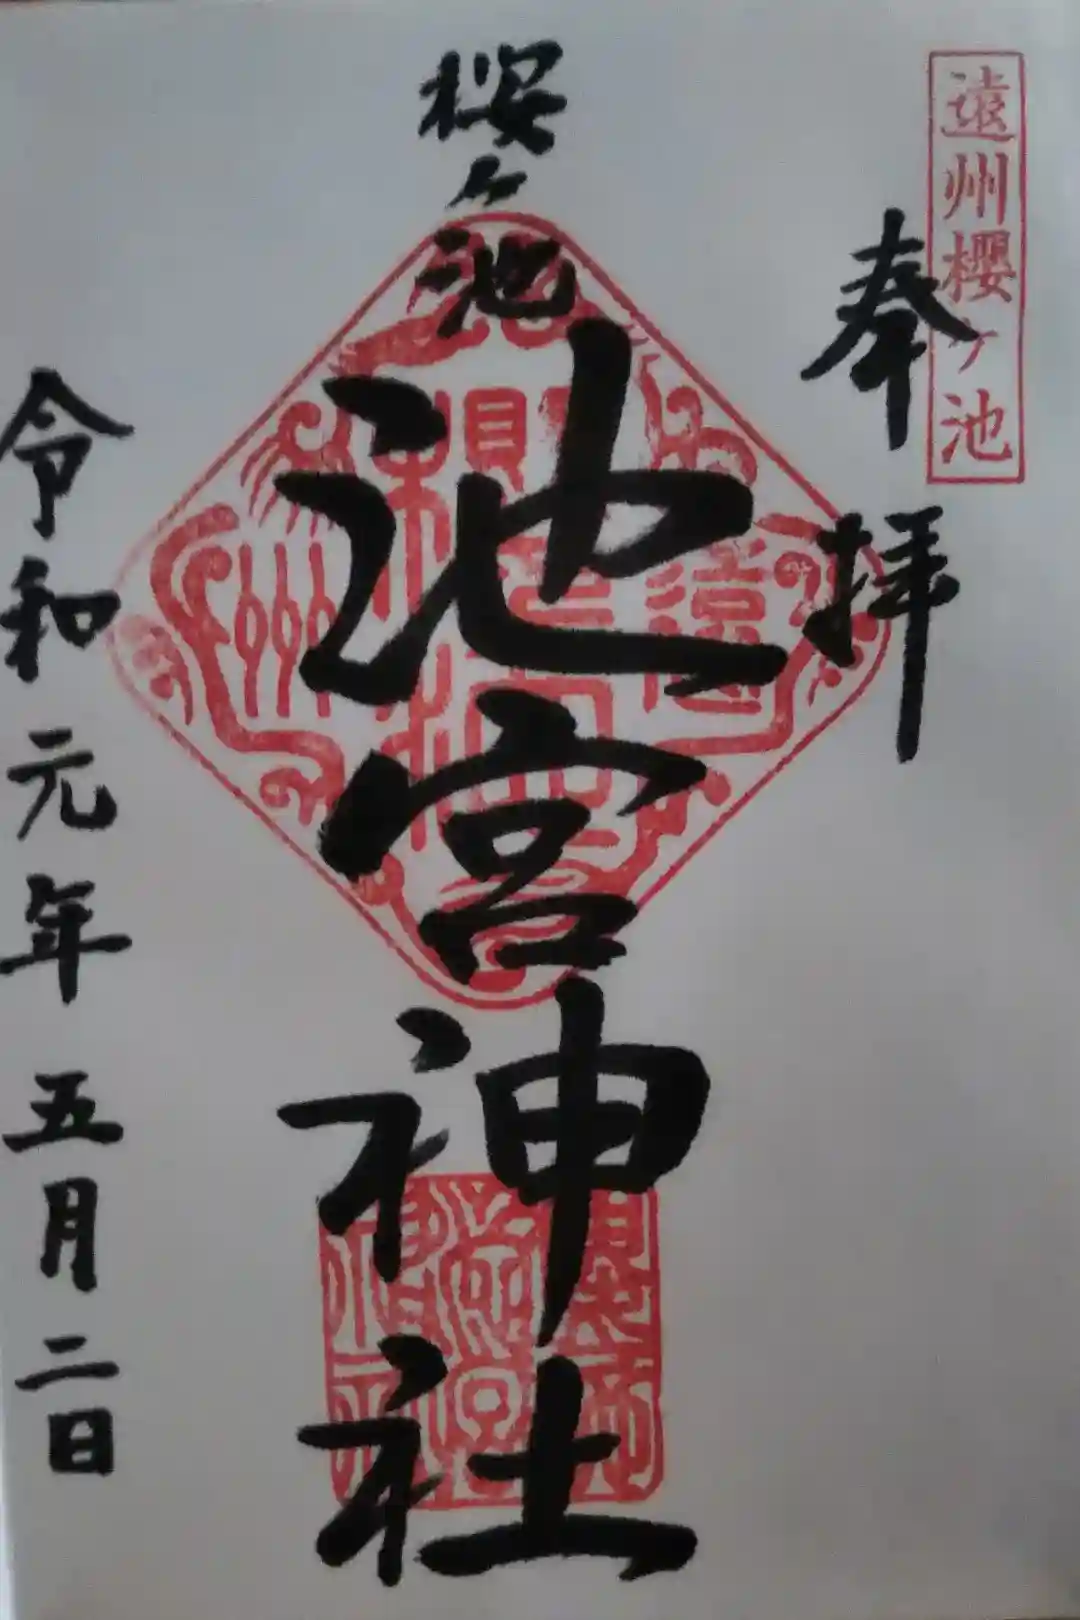 遠州櫻ヶ池
奉拝
櫻ヶ池
池宮神社
令和元年五月二日